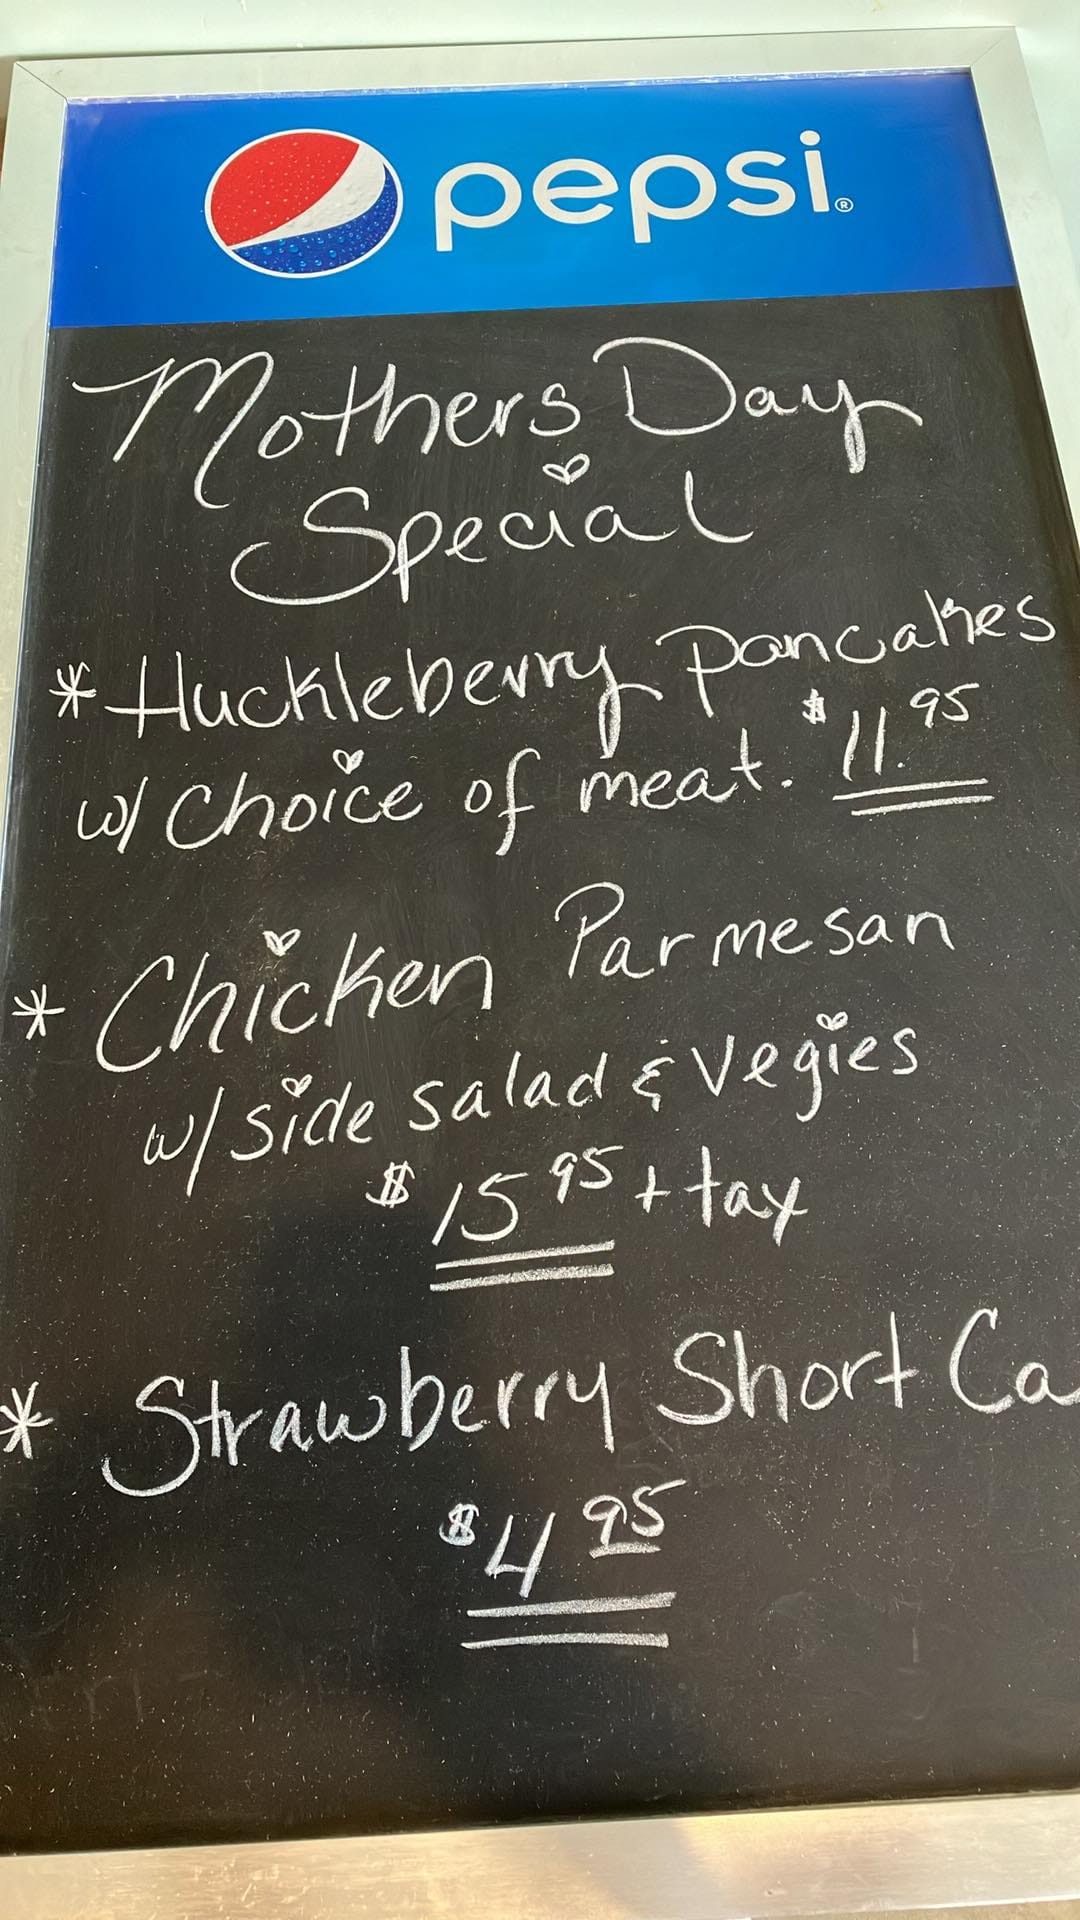 pepsi®
Mothers Day
Special
* Huckleberry Pancakes
w/ Choice of meat. $11.95
* Chicken Parmesan
w/ side salad & Vegies
$15 95 + tax
* Strawberry Short Ca
$4 95